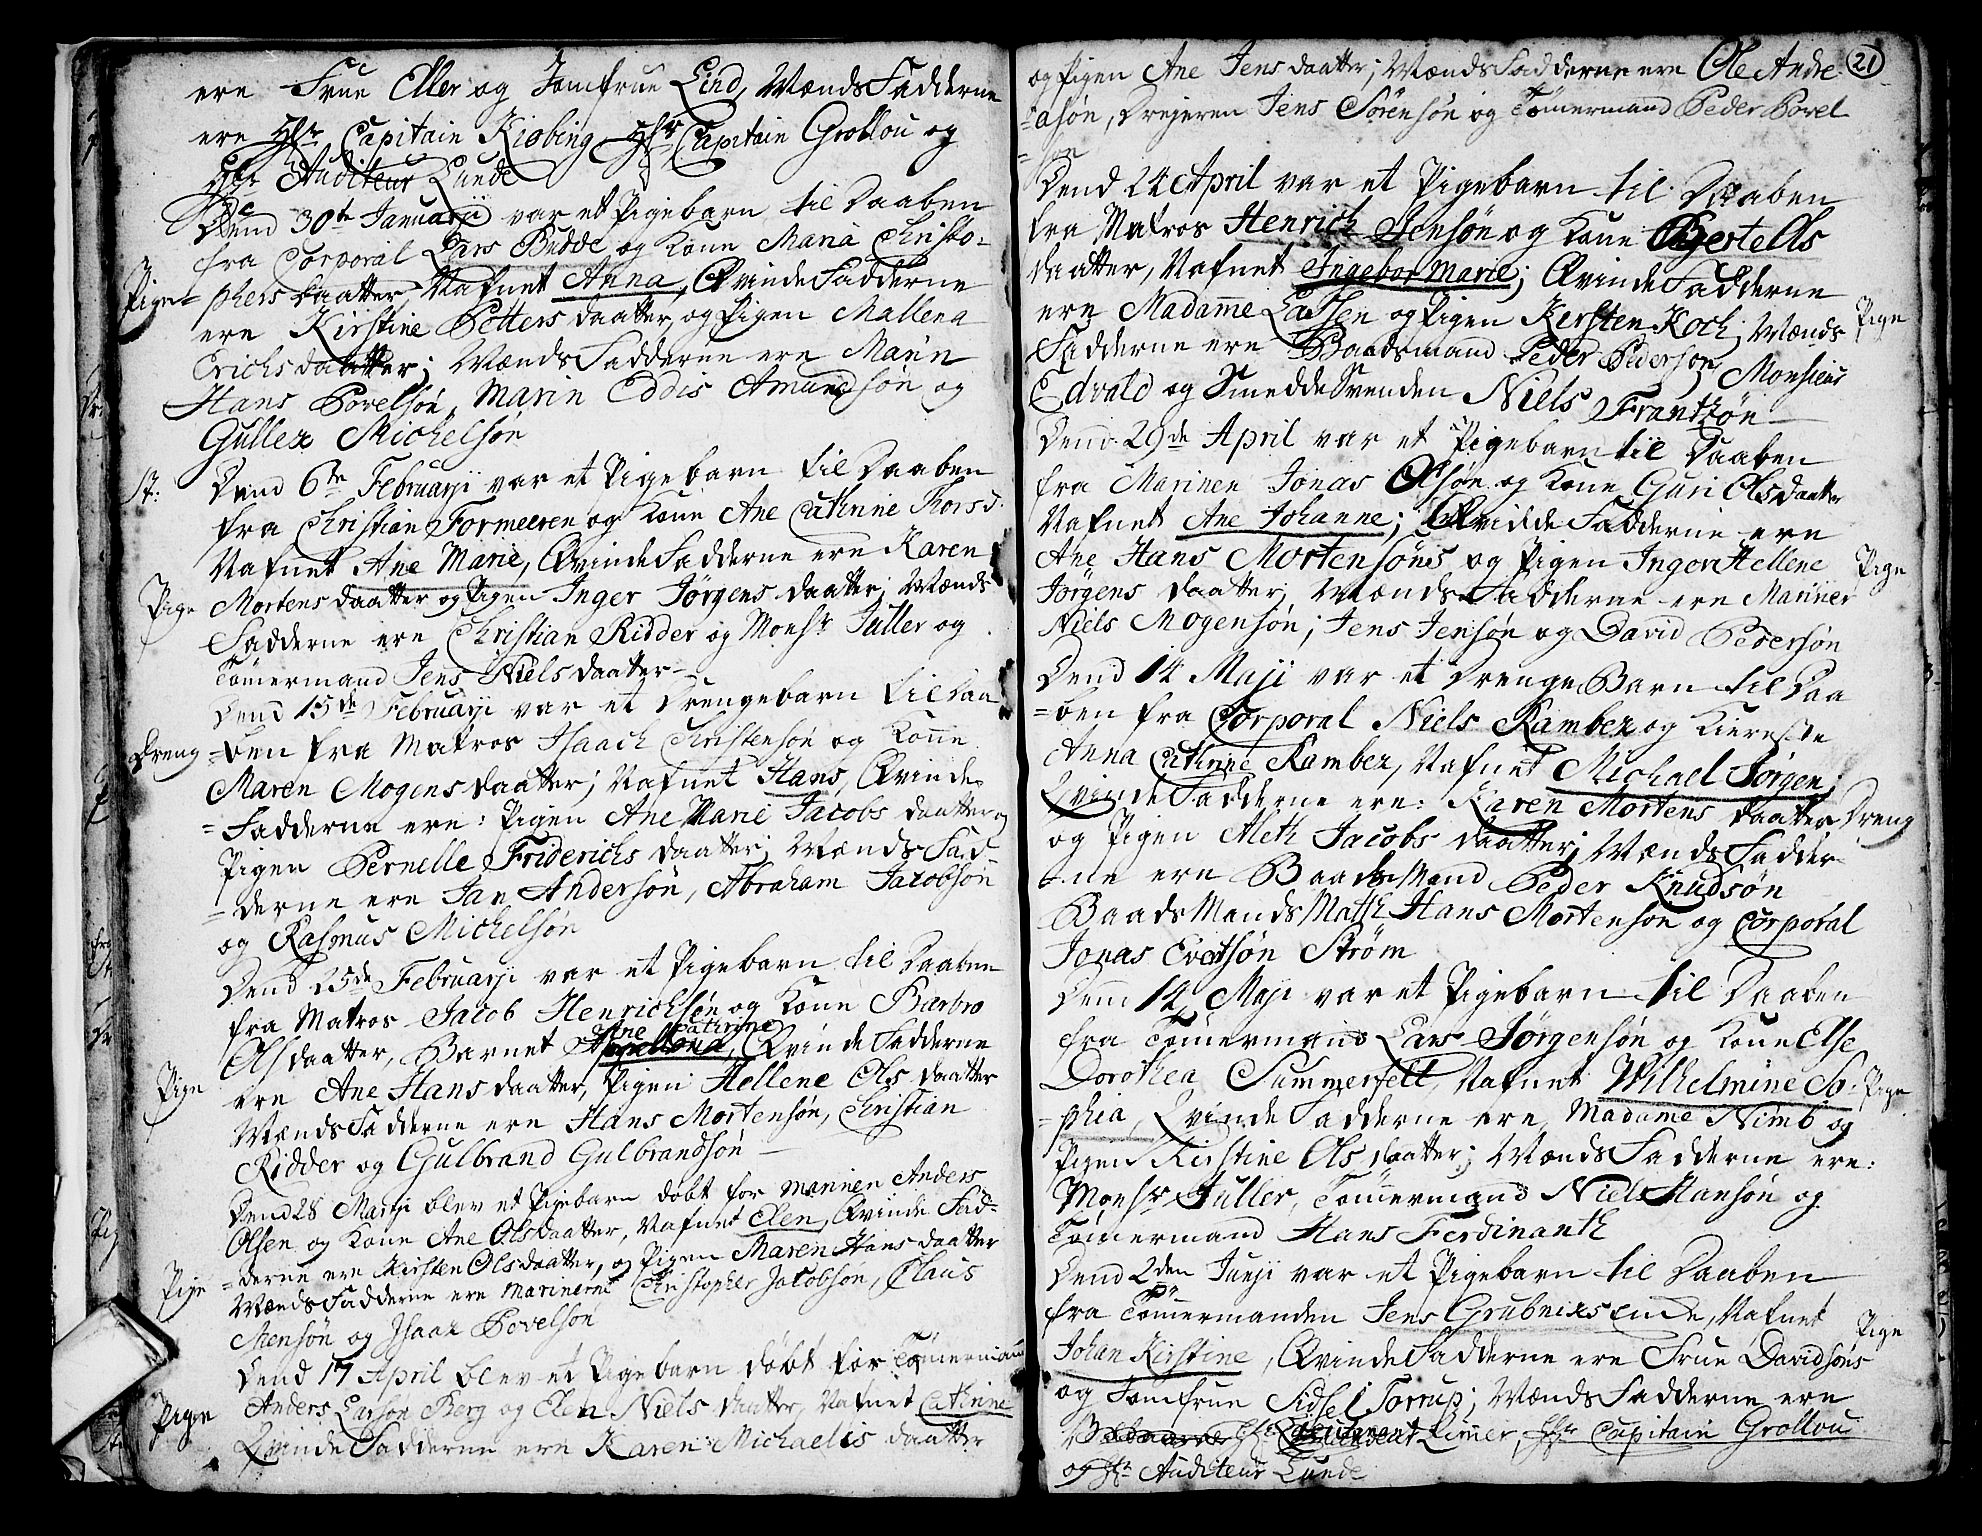 ere Frue Eller og Jomfrue Lind, MændsFadderne
ere Hr Capitain Kiøbing, Hr Capitain Grollou og
Hr Auditeur Lunde
Dend 30te Januarij var et Pigebarn til Daaben
fra Corporal Lars Budde og Kone Maria Christo-
Pige
phers daatter, Nafnet Anna, QvindeFadderne
ere Kirstine Petters daatter, og Pigen Mallena
Erichs daatter; MændsFadderne ere Marin
Hans Povelsøn, Marin Eddis Amundsøn og
Gullex Michelsøn
17:
Dend 6te Februarij var et Pigebarn til Daaben
fra Christian Formeeren og Kone Ane Cathrine Thors d.
Nafnet Ane Marie, QvindeFadderne ere Karen
Pige
Mortens daatter og Pigen Inger Jørgens daatter; Mænds
Fadderne ere Christian Ridder og Monsr Fuller og
Tømermand Jens Niels daatter
Dend 15de Februarij var et Drengebarn til Daa
Dreng
=ben fra Matros Isaach Christensøn og Kone
Maren Mogens daatter; Nafnet Hans, Qvinde
=Fadderne ere: Pigen Ane Marie Jacobs daatter og
Pigen Pernelle Friderichs daatter; MændsFad
=derne ere Jan Andersøn, Abraham Jacobsøn
og Rasmus Michelsøn
Dend 25de Februarij var et Pigebarn til Daaben
fra Matros Jacob Henrichsøn og Kone Barbro
Ane Cathrine
Ols daatter, Barnet QvindeFadderne
Pige
ere Ane Hans daatter, Pigen Hellene Ols daatter
MændsFadderne ere Hans Mortensøn, Christian
Ridder og Gulbrand Gulbrandsøn
Dend 28 Martji blev et Pigebarn døbt for Marinen Anders
Olsen og Kone Ane Olsdaatter, Nafnet Elen, Qvinde Fad-
Pige
=derne ere Kirsten Olsdaatter, og Pigen Maren Hans daatter
MændsFadderne ere Marinerne Christopher Jacobsøn, Claus
Stensøn og Isaax Povelsøn
Dend 17 April blev et Pigebarn døbt for Tømermand
Pigen
Anders Larsøn Berg og Elen Niels daatter, Nafnet Cathrine
QvindeFadderne ere Karen Michaelis daatter
21
og Pigen Ane Jens daatter; MændsFadderne ere Ole Andre
=asøn, Drejeren Jens Sørensøn og Tømermand Peder Povel
=søn
Dend 24 April var et Pigebarn til Daaben
fra Matros Henrich Jensøn og Kone Bgerte Ols
daatter, Nafnet Ingebor Marie; QvindeFadderne
ere Madame Lassen og Pigen Kersten Koch; Mænds
Pige
Fadderne ere Baadsmand Peder Pedersøn, Monsieur
Edvald og SmeddeSvenden Niels Frantzøn
Dend 29de April var et Pigebarn til Daaben
fra Marinen Jonas Olsøn og Kone Guri Olsdaatter
Nafnet Ane Johanne; QvindeFadderne ere
Ane Hans Mortensøns og Pigen Ingor Hellene
Pige
Jørgens daatter; MændsFadderne ere Mariner
Niels Mogensøn; Jens Jensøn og David Pedersøn
Dend 14 Maji var et DrengeBarn til Daa
=ben fra Corporal Niels Rambex og Kiereste
Anna Cathrine Rambex, Nafnet Michael Jørgen;
QvindeFadderne ere: Karen Mortens daatter
Dreng
og Pigen Aleth Jacobs daatter; MændsFadder
=ne ere BaadsMand Peder Knudsøn
BaadsMandsMatth Hans Mortensøn og Corporal
Jonas Evertsøn Strøm
Denn 14 Maji var et Pigebarn til Daaben
fra Tømermand Lars Jørgensøn og Kone Else
Dorothea Summerfelt, Nafnet Wilhelmine So:
Pige
=phia, QvindeFadderne ere, Madame Nimb og
Pigen Kirstine Ols daatter; MændsFadderne ere:
Monsr Fuller, Tømermand Niels Hansøn og
Tømermand Hans Ferdinanth
Dend 2den Junji var et Pigebarn til Daaben
fra Tømermanden Jens Grubnixs Ende, Nafnet
Pige
Johan Kirstine, QvindeFadderne ere Frue Davidsøns
og Jomfrue Sidsel Torrup; MændsFadderne ere
Hr Lieutnant Limer, Hr Capitain Grollou
og Hr Auditeur Lunde